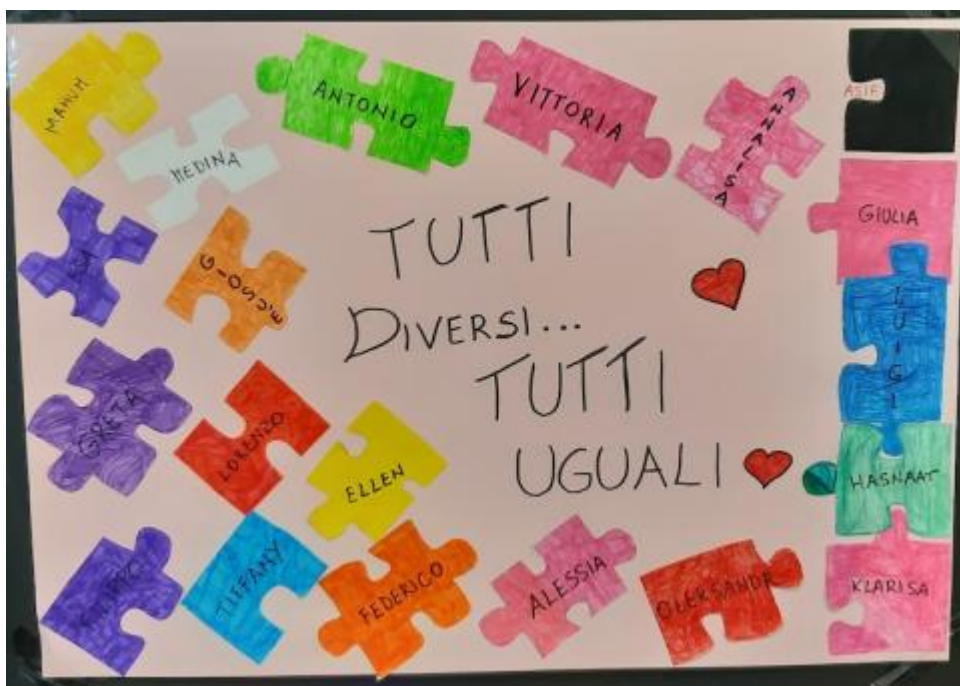 MAHUM
MEDINA
ANTONIO
VITTORIA
ANNALISA
ASIF
GIULIA
GIOSUE'
TUTTI
DIVERSI...
TUTTI
UGUALI
LUIGI
GRETA
LORENZO
ELLEN
HASNAAT
TIFFANY
FEDERICO
ALESSIA
OLEKSANDR
KLARISA